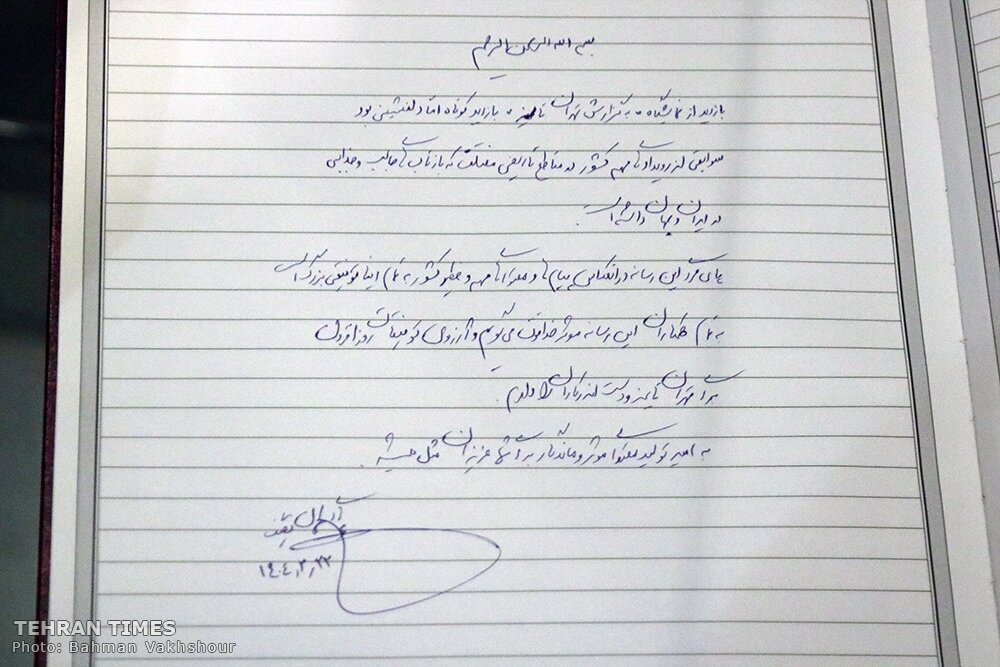 بسم الله الرحمن الرحیم
بازدید از نمایشگاه «به گزارش تهران تایمز» بازدید کوتاه اما دلنشینی بود
سوابقی از رویدادهای مهم کشور در مقاطع تاریخی مختلف که بازتاب‌های جالب و جذابی
در ایران و جهان داشته است.
این رسانه در انعکاس پیام‌ها و مهم و کشور به تمام دنیا توفیقی بزرگ است
به تمام همکاران این رسانه موثر خداقوت می‌گویم و آرزوی توفیقات روزافزون
برای تهران تایمز و دست اندرکاران را دارم.
به امید تولید محتوای موثر و ماندگار برای شما عزیزان مثل همیشه.
۱۴۰۴٫۲٫۲۲
TEHRAN TIMES
Photo: Bahman Vakhshour